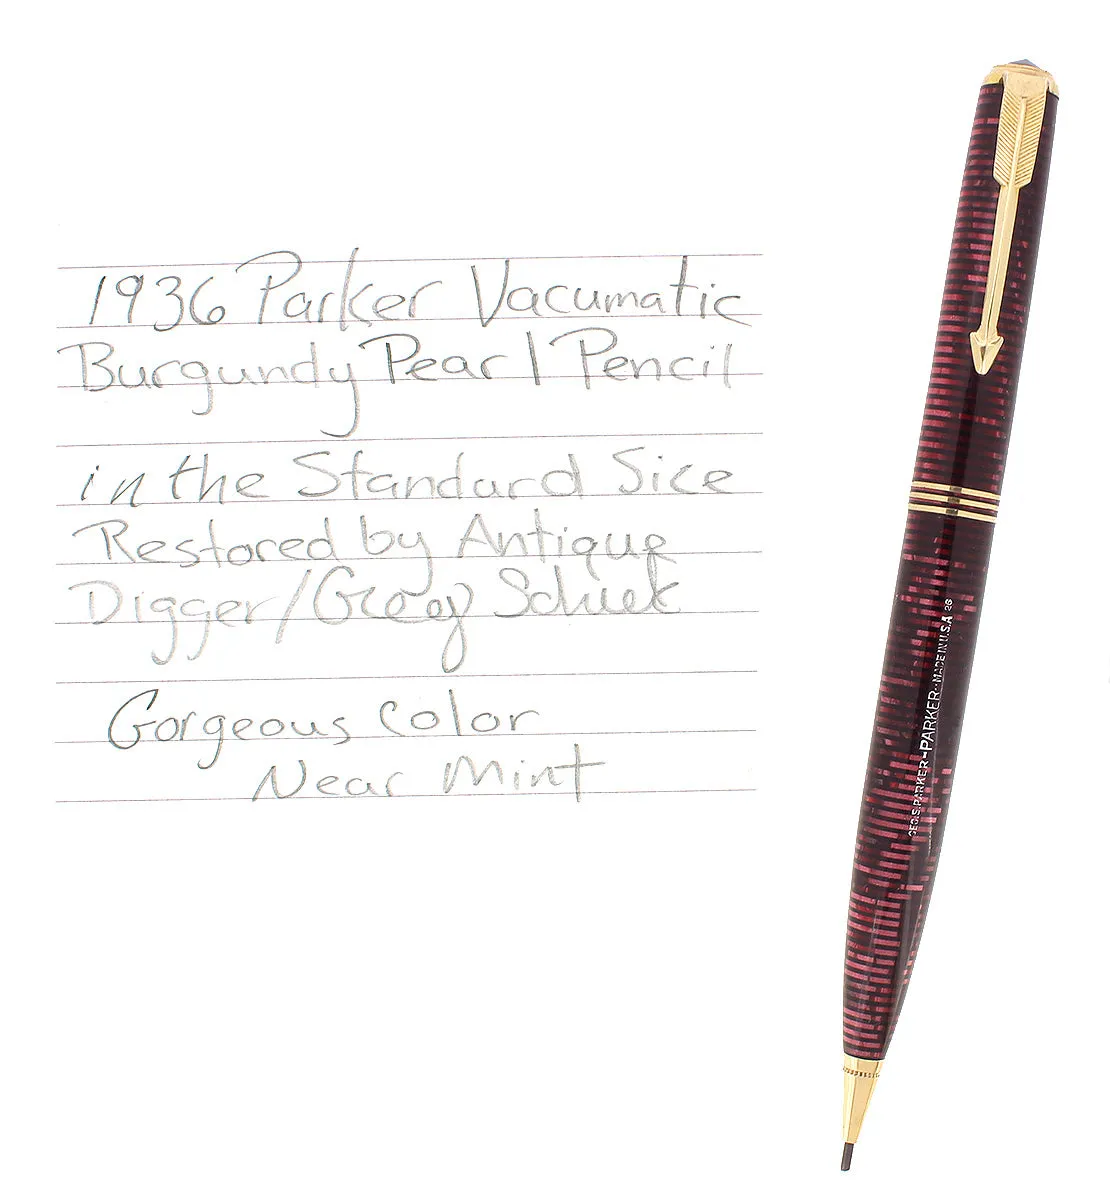 1936 Parker Vacumatic
Burgundy Pearl Pencil
in the Standard Size
Restored by Antique
Digger/Gregg
Gorgeous color
Near Mint
GEO.S.PARKER-PARKER-MADE IN U.S.A 26